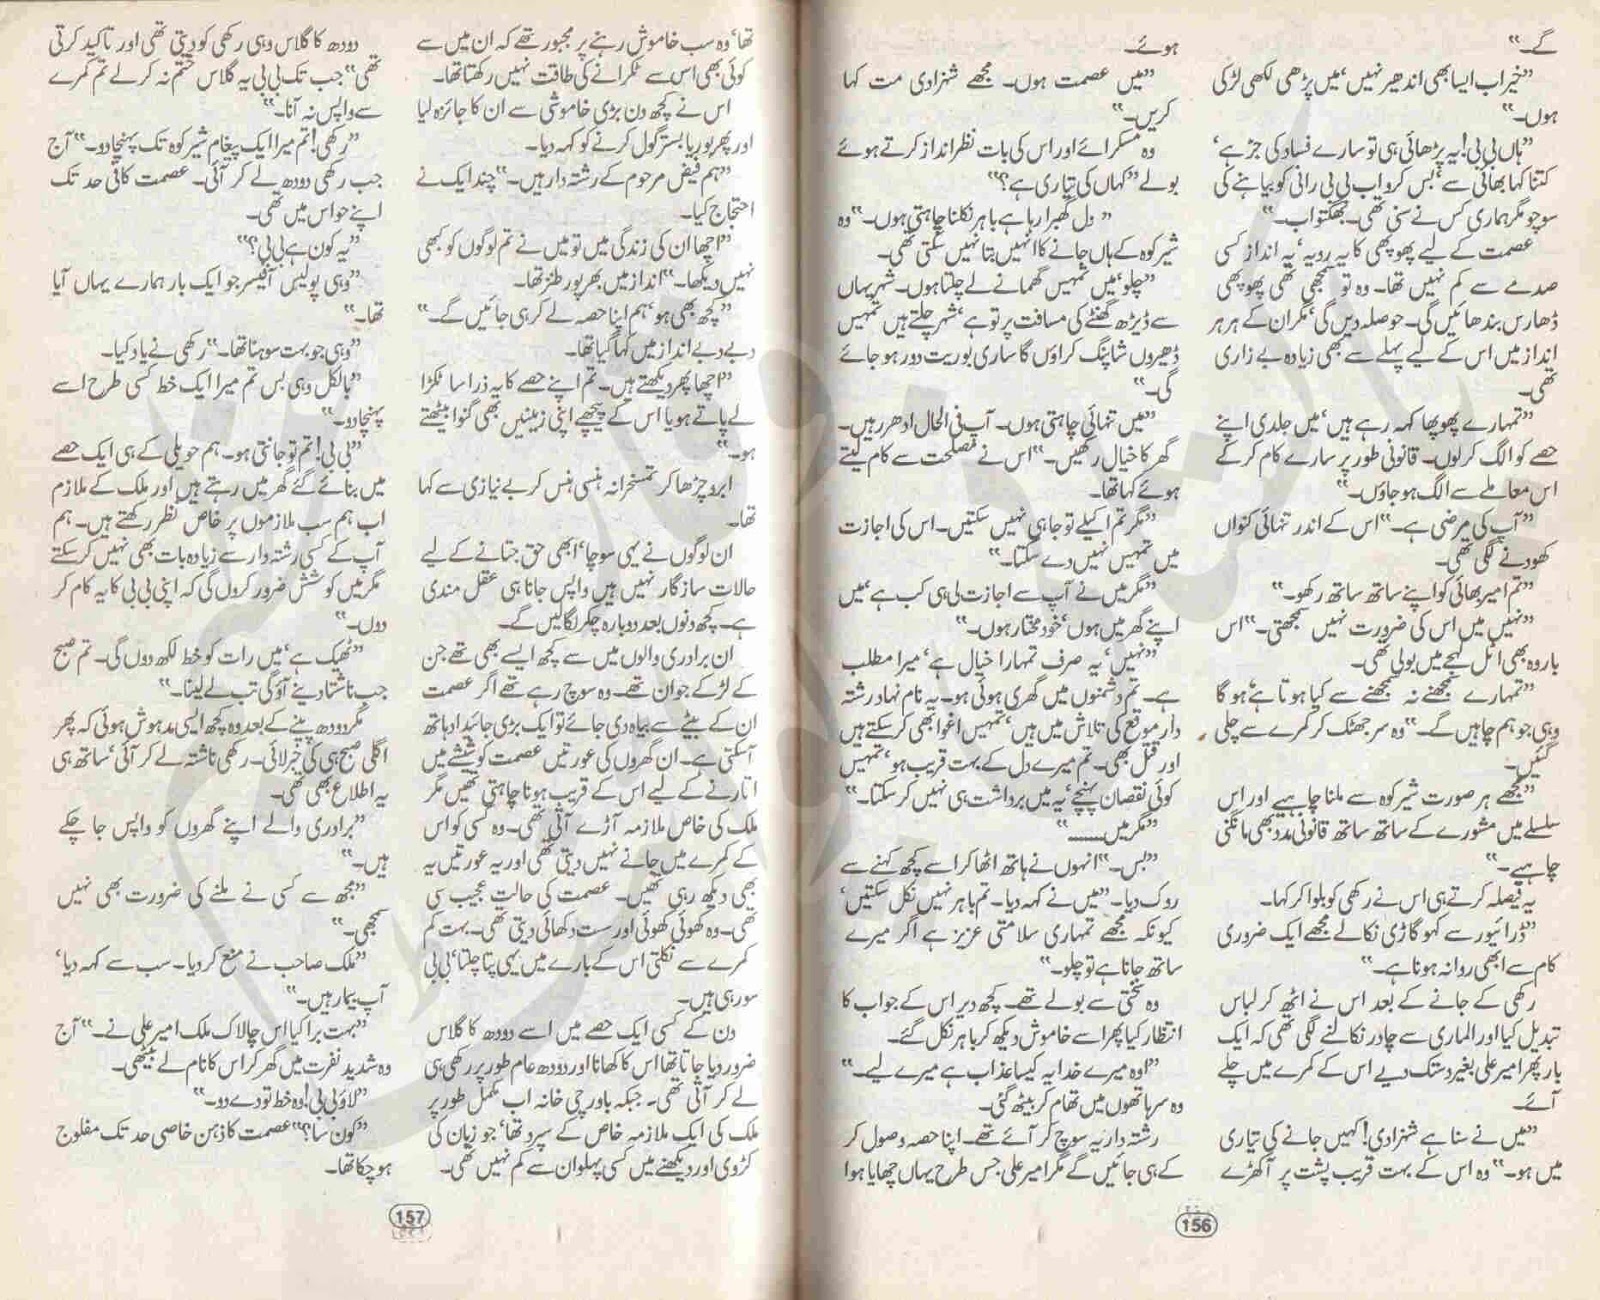 گے۔"
"خیر اب ایسا بھی اندھیر نہیں، میں پڑھی لکھی لڑکی
ہوں۔"
"ہاں بی بی! یہ پڑھائی ہی تو سارے فساد کی جڑ ہے،
کتنا کہا بھائی سے، بس کرو اب بی بی رانی کو بیاہنے کی
سوچو مگر ہماری کس نے سنی تھی۔ بھگتو اب۔"
عصمت کے لیے پھوپھی کا یہ رویہ، یہ انداز کسی
صدمے سے کم نہیں تھا۔ وہ تو سمجھی تھی پھوپھی
ڈھارس بندھائیں گی۔ حوصلہ دیں گی، مگر ان کے ہر ہر
انداز میں اس کے لیے پہلے سے بھی زیادہ بے زاری
تھی۔
"تمہارے پھوپھا کہہ رہے ہیں، میں جلدی اپنے
حصے کو الگ کر لوں۔ قانونی طور پر سارے کام کر کے
اس معاملے سے الگ ہو جاؤں۔"
"آپ کی مرضی ہے۔" اس کے اندر تنہائی کنواں
کھودنے لگی تھی۔
"تم امیر بھائی کو اپنے ساتھ ساتھ رکھو۔"
"نہیں میں اس کی ضرورت نہیں سمجھتی۔" اس
بار وہ بھی اٹل لہجے میں بولی تھی۔
"تمہارے سمجھنے نہ سمجھنے سے کیا ہوتا ہے، ہو گا
وہی جو ہم چاہیں گے۔" وہ سر جھٹک کر کمرے سے چلی
گئیں۔
"مجھے ہر صورت شیر کوہ سے ملنا چاہیے اور اس
سلسلے میں مشورے کے ساتھ ساتھ قانونی مدد بھی مانگنی
چاہیے۔"
یہ فیصلہ کرتے ہی اس نے رکھی کو بلوا کر کہا۔
"ڈرائیور سے کہو گاڑی نکالے مجھے ایک ضروری
کام سے ابھی روانہ ہونا ہے۔"
رکھی کے جانے کے بعد اس نے اٹھ کر لباس
تبدیل کیا اور الماری سے چادر نکالنے لگی تھی کہ ایک
بار پھر امیر علی بغیر دستک دیے اس کے کمرے میں چلے
آئے۔
"میں نے سنا ہے شہزادی! کہیں جانے کی تیاری
میں ہو۔" وہ اس کے بہت قریب پشت پر آ کھڑے
ہوئے۔
"میں عصمت ہوں۔ مجھے شہزادی مت کہا
کریں۔"
وہ مسکرائے اور اس کی بات نظر انداز کرتے ہوئے
بولے "کہاں کی تیاری ہے؟"
"دل گھبرا رہا ہے باہر نکلنا چاہتی ہوں۔" وہ
شیر کوہ کے ہاں جانے کا انہیں بتا نہیں سکتی تھی۔
"چلو، میں تمہیں گھمانے لے چلتا ہوں۔ شہر یہاں
سے ڈیڑھ گھنٹے کی مسافت پر تو ہے، شہر چلتے ہیں تمہیں
ڈھیروں شاپنگ کراؤں گا ساری بوریت دور ہو جائے
گی۔"
"میں تنہائی چاہتی ہوں۔ آپ فی الحال ادھر رہیں۔
گھر کا خیال رکھیں۔" اس نے مصلحت سے کام لیتے
ہوئے کہا تھا۔
"مگر تم اکیلے تو جا ہی نہیں سکتیں۔ اس کی اجازت
میں تمہیں نہیں دے سکتا۔"
"مگر میں نے آپ سے اجازت لی ہی کب ہے، میں
اپنے گھر میں ہوں، خود مختار ہوں۔"
"نہیں، یہ صرف تمہارا خیال ہے، میرا مطلب
ہے۔ تم دشمنوں میں گھری ہوئی ہو۔ یہ نام نہاد رشتہ
دار موقع کی تلاش میں ہیں، تمہیں اغوا بھی کر سکتے ہیں
اور قتل بھی۔ تم میرے دل کے بہت قریب ہو، تمہیں
کوئی نقصان پہنچے، یہ میں برداشت ہی نہیں کر سکتا۔"
"مگر میں........"
"بس۔" انہوں نے ہاتھ اٹھا کر اسے کچھ کہنے سے
روک دیا۔ "میں نے کہہ دیا۔ تم باہر نہیں نکل سکتیں،
کیونکہ مجھے تمہاری سلامتی عزیز ہے اگر میرے
ساتھ جانا ہے تو چلو۔"
وہ سختی سے بولے تھے۔ کچھ دیر اس کے جواب کا
انتظار کیا پھر اسے خاموش دیکھ کر باہر نکل گئے۔
"اوہ میرے خدا یہ کیسا عذاب ہے میرے لیے۔"
وہ سر ہاتھوں میں تھام کر بیٹھ گئی۔
رشتہ دار یہ سوچ کر آئے تھے۔ اپنا حصہ وصول کر
کے ہی جائیں گے مگر امیر علی جس طرح یہاں چھایا ہوا
156
تھا، وہ سب خاموش رہنے پر مجبور تھے کہ ان میں سے
کوئی بھی اس سے ٹکرانے کی طاقت نہیں رکھتا تھا۔
اس نے کچھ دن بڑی خاموشی سے ان کا جائزہ لیا
اور پھر بوریا بستر گول کرنے کو کہہ دیا۔
"ہم فیض مرحوم کے رشتہ دار ہیں۔" چند ایک نے
احتجاج کیا۔
"اچھا ان کی زندگی میں تو میں نے تم لوگوں کو کبھی
نہیں دیکھا۔" انداز میں بھرپور طنز تھا۔
"کچھ بھی ہو، ہم اپنا حصہ لے کر ہی جائیں گے۔"
دبے دبے انداز میں کہا گیا تھا۔
"اچھا پھر دیکھتے ہیں۔ تم اپنے حصے کا یہ ذرا سا ٹکڑا
لے پاتے ہو یا اس کے پیچھے اپنی زمینیں بھی گنوا بیٹھتے
ہو۔"
ابرو چڑھا کر تمسخرانہ ہنسی ہنس کر بے نیازی سے کہا
تھا۔
ان لوگوں نے یہی سوچا، ابھی حق جتانے کے لیے
حالات سازگار نہیں ہیں واپس جانا ہی عقل مندی
ہے۔ کچھ دنوں بعد دوبارہ چکر لگالیں گے۔
ان برادری والوں میں سے کچھ ایسے بھی تھے جن
کے لڑکے جوان تھے۔ وہ سوچ رہے تھے اگر عصمت
ان کے بیٹے سے بیاہ دی جائے تو ایک بڑی جائیداد ہاتھ
آ سکتی ہے۔ ان گھروں کی عورتیں عصمت کو شیشے میں
اتارنے کے لیے اس کے قریب ہونا چاہتی تھیں مگر
ملک کی خاص ملازمہ آڑے آتی تھی۔ وہ کسی کو اس
کے کمرے میں جانے نہیں دیتی تھی اور یہ عورتیں یہ
بھی دیکھ رہی تھیں۔ عصمت کی حالت عجیب سی
تھی۔ وہ کھوئی کھوئی اور ست دکھائی دیتی تھی۔ بہت کم
کمرے سے نکلتی اس کے بارے میں یہی پتا چلتا، بی بی
سو رہی ہیں۔
دن کے کسی ایک حصے میں اسے دودھ کا گلاس
ضرور دیا جاتا تھا اس کا کھانا اور دودھ عام طور پر رکھی ہی
لے کر آتی تھی۔ جبکہ باورچی خانہ اب مکمل طور پر
ملک کی ایک ملازمہ خاص کے سپرد تھا، جو زبان کی
کڑوی اور دیکھنے میں کسی پہلوان سے کم نہیں تھی۔
دودھ کا گلاس وہی رکھی کو دیتی تھی اور تاکید کرتی
تھی "جب تک بی بی یہ گلاس ختم نہ کر لے تم کمرے
سے واپس نہ آنا۔"
"رکھی! تم میرا ایک پیغام شیر کوہ تک پہنچا دو۔" آج
جب رکھی دودھ لے کر آئی۔ عصمت کافی حد تک
اپنے حواس میں تھی۔
"یہ کون ہے بی بی؟"
"وہی پولیس آفیسر جو ایک بار ہمارے یہاں آیا
تھا۔"
"وہی جو بہت سوہنا تھا۔" رکھی نے یاد کیا۔
"بالکل وہی بس تم میرا ایک خط کسی طرح اسے
پہنچا دو۔"
"بی بی! تم تو جانتی ہو۔ ہم حویلی کے ہی ایک حصے
میں بنائے گئے گھر میں رہتے ہیں اور ملک کے ملازم
اب ہم سب ملازموں پر خاص نظر رکھتے ہیں۔ ہم
آپ کے کسی رشتہ دار سے زیادہ بات بھی نہیں کر سکتے
مگر میں کوشش ضرور کروں گی کہ اپنی بی بی کا یہ کام کر
دوں۔"
"ٹھیک ہے، میں رات کو خط لکھ دوں گی۔ تم صبح
جب ناشتا دینے آؤ گی تب لے لینا۔"
مگر دودھ پینے کے بعد وہ کچھ ایسی مدہوش ہوئی کہ پھر
اگلی صبح ہی کی خبر لائی۔ رکھی ناشتہ لے کر آئی، ساتھ ہی
یہ اطلاع بھی تھی۔
"برادری والے اپنے گھروں کو واپس جا چکے
ہیں۔"
"مجھ سے کسی نے ملنے کی ضرورت بھی نہیں
سمجھی۔"
"ملک صاحب نے منع کر دیا۔ سب سے کہہ دیا،
آپ بیمار ہیں۔"
"بہت برا کیا اس چالاک ملک امیر علی نے۔" آج
وہ شدید نفرت میں گھر کر اس کا نام لے بیٹھی۔
"لاؤ بی بی! وہ خط تو دے دو۔"
"کون سا؟" عصمت کا ذہن خاصی حد تک مفلوج
ہو چکا تھا۔
157